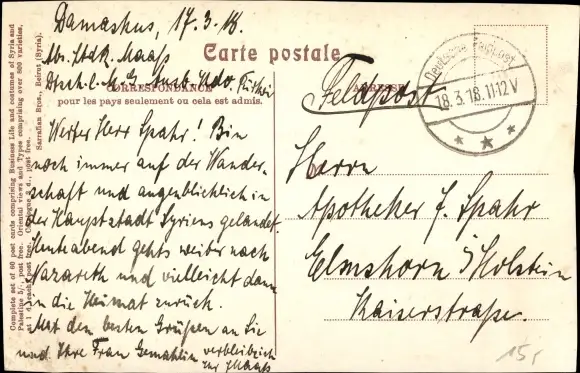 Complete set of 60 post cards comprising Business Life and costumes of Syria and
Palestine post free. Oriental views and Types comprising over 800 varieties.
Sarrafian Bros., Beirut (Syria).
Damaskus, 17.3.18.
Abs. Maass
Carte postale
CORRESPONDANCE
pour les pays seulement ou cela est admis.
ADRESSE
Feldpost
Deutsche Feldpost
18.3.18.11-12V
Werter Herr Spahr! Bin
noch immer auf der Wander-
schaft und augenblicklich in
der Hauptstadt Syriens gelandet.
Heuteabend gehts weiter nach
Nazareth und vielleicht dann
in die Heimat zurück.
Mit den besten Grüßen an Sie
und Ihre Frau Gemahlin verbleibe ich
Ihr Maass
Herrn
Apotheker f. Spahr
Elmshorn i/Holstein
Kaiserstraße.
15,